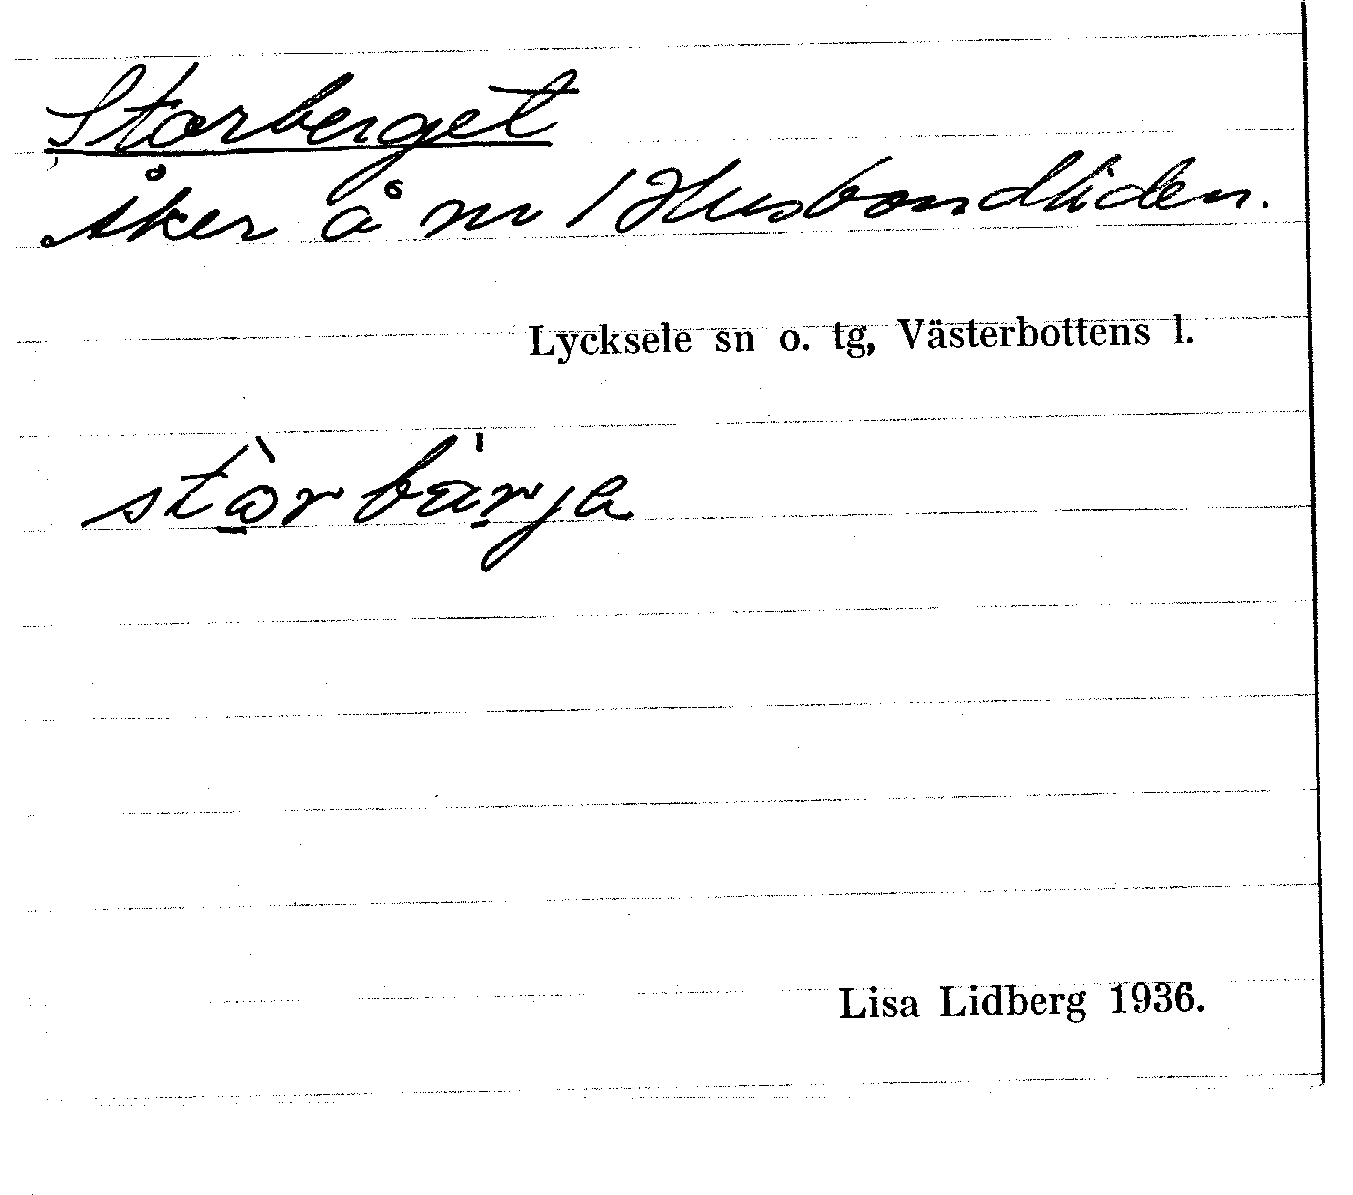 Storberget
åker å nr 1 Husbondliden.
Lycksele sn o. tg, Västerbottens l.
stòrbärja
Lisa Lidberg 1936.